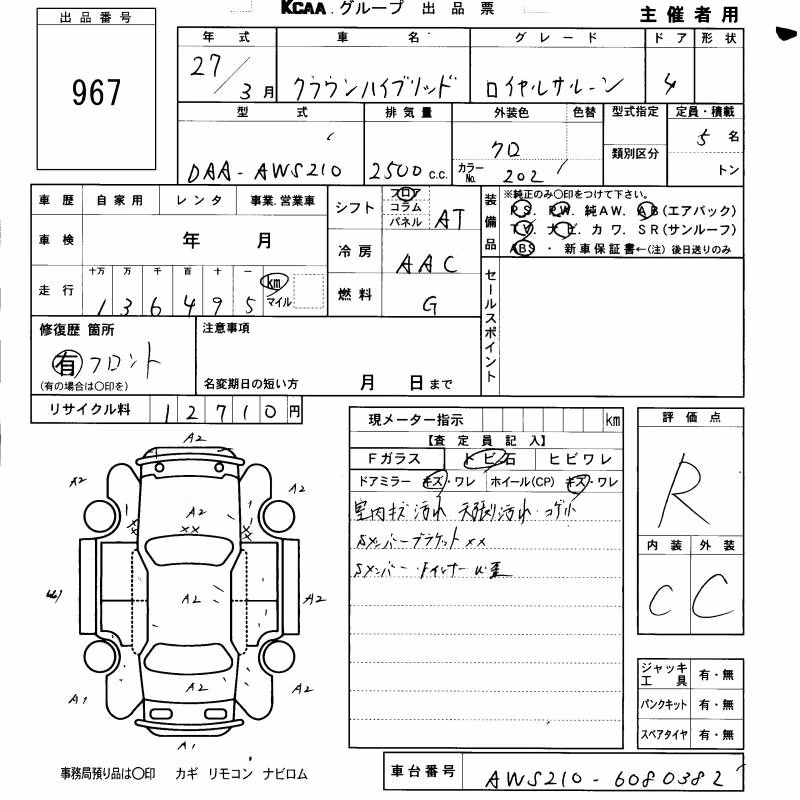 KCAA グループ 出品票
主催者用
出品番号
967
年式 車名 グレード ドア 形状
27/3月 クラウンハイブリッド ロイヤルサルーン 4
型式 排気量 外装色 色替 型式指定 定員・積載
類別区分
DAA-AWS210 2500c.c. クロ カラーNo. 202 5名
トン
車歴 自家用 レンタ 事業.営業車
車検 年 月
走行 十万 万 千 百 十 一 km マイル
1 3 6 4 9 5
シフト フロア コラム パネル AT
冷房 AAC
燃料 G
装備品
※純正のみ○印をつけて下さい。
PS. PW. 純AW. AB(エアバック)
TV. ナビ. カワ. SR(サンルーフ)
ABS・新車保証書←(注)後日送りのみ
セールスポイント
修復歴 箇所
有 フロント
(有の場合は○印を)
注意事項
名変期日の短い方 月 日まで
リサイクル料 12710円
現メーター指示 km
【査定員記入】
Fガラス トビ石 ヒビワレ
ドアミラー キズ・ワレ ホイール(CP) キズ・ワレ
室内キズ 汚れ 天張り汚れ・コゲ小
Sメンバーブラケットxx
Sメンバー・インナー
評価点
R
内装 外装
C C
ジャッキ工具 有・無
パンクキット 有・無
スペアタイヤ 有・無
A2
A2 A2
A2
xx
A2 A2
A1 A2 A2
A1
事務局預り品は○印 カギ リモコン ナビロム
車台番号 AWS210-6080382